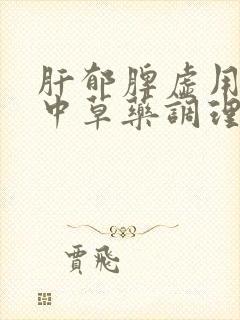 肝郁脾虚用
中草藥調理
賈飛